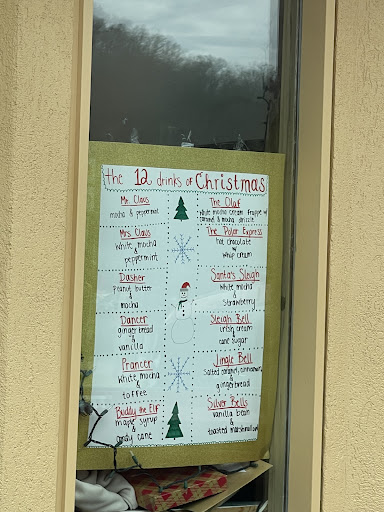 the 12 drinks of Christmas
Mr. Claus
mocha & peppermint
Mrs. Claus
White mocha
&
peppermint
Dasher
peanut butter
&
mocha
Dancer
gingerbread
&
vanilla
Prancer
White mocha
&
toffee
Buddy the Elf
maple syrup
&
candy cane
The Olaf
white mocha cream frappe w/
caramel & mocha drizzle
The Polar Express
hot chocolate
w/
whip cream
Santa's Sleigh
white mocha
&
strawberry
Sleigh Bell
irish cream
&
cane sugar
Jingle Bell
Salted caramel, cinnamon,
&
gingerbread
Silver Bells
vanilla bean
&
toasted marshmallow